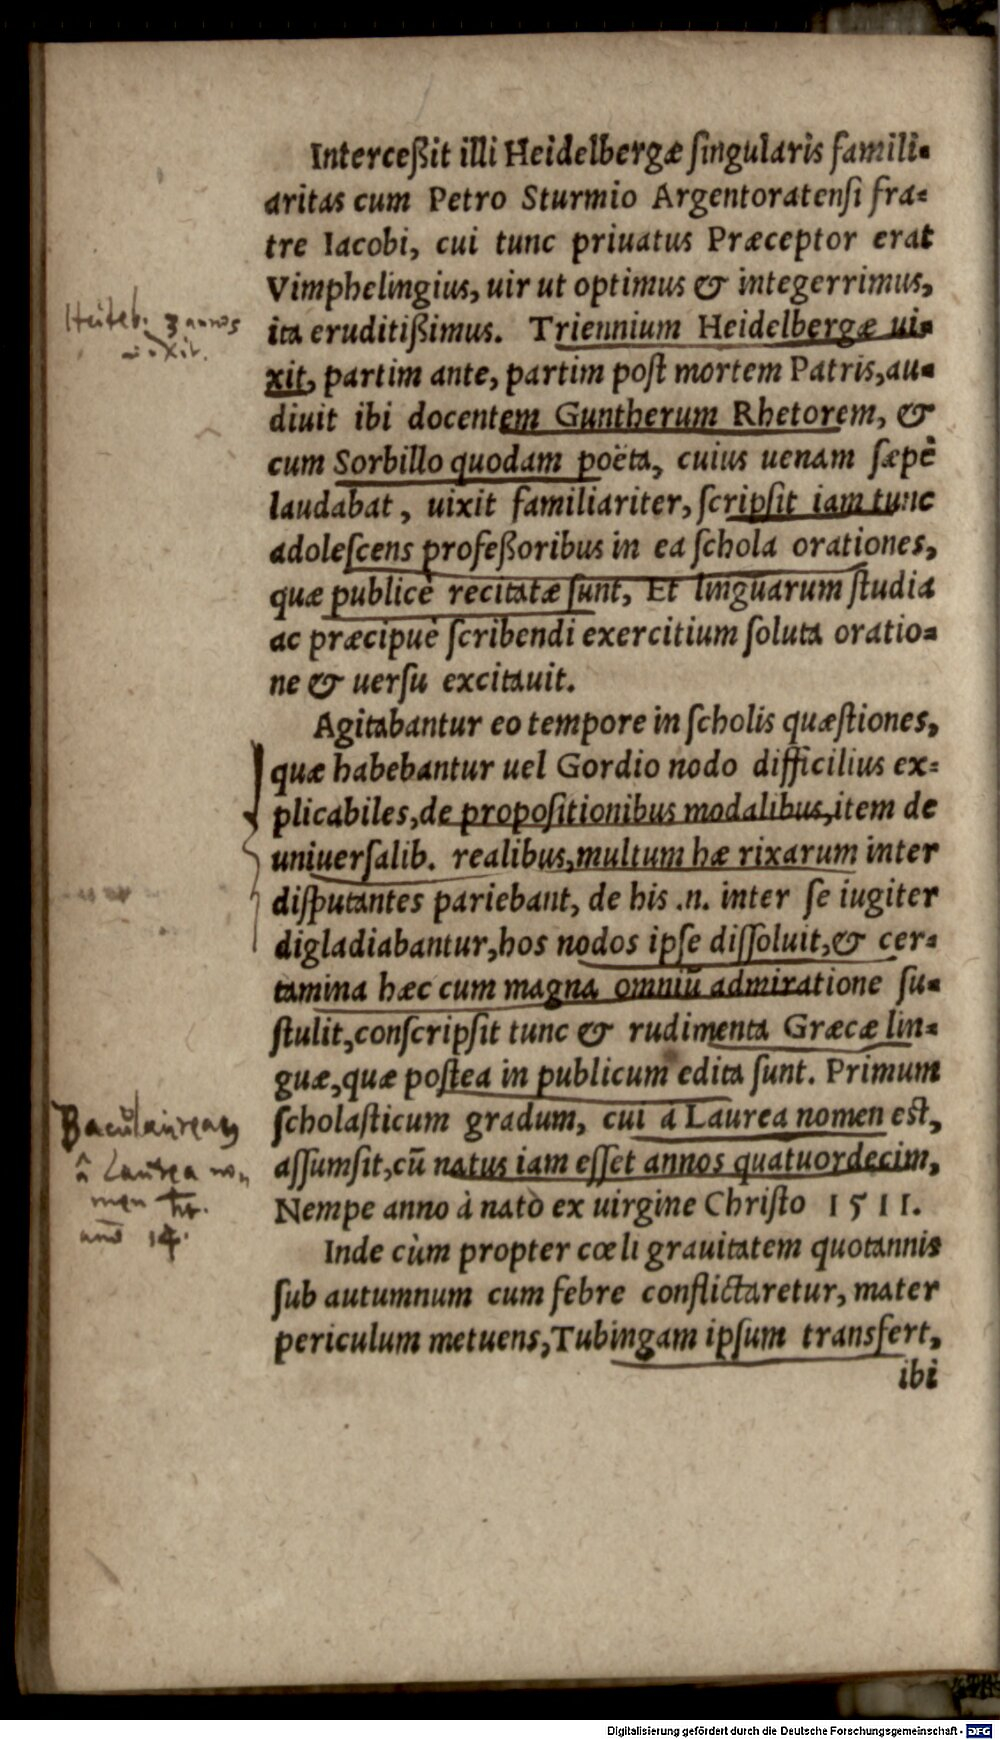 Interceßit illi Heidelbergæ ſingularis famili-
aritas cum Petro Sturmio Argentoratenſi fra-
tre Iacobi, cui tunc priuatus Præceptor erat
Vimphelingius, uir ut optimus & integerrimus,
ita eruditißimus. Triennium Heidelbergæ ui-
xit, partim ante, partim poſt mortem Patris, au-
diuit ibi docentem Guntherum Rhetorem, &
cum Sorbillo quodam poëta, cuius uenam ſæpè
laudabat, uixit familiariter, ſcripſit iam tunc
adoleſcens profeßoribus in ea ſchola orationes,
quæ publicè recitatæ ſunt, Et linguarum ſtudia
ac præcipuè ſcribendi exercitium ſoluta oratio-
ne & uerſu excitauit.
Agitabantur eo tempore in ſcholis quæſtiones,
quæ habebantur uel Gordio nodo difficilius ex-
plicabiles, de propoſitionibus modalibus, item de
uniuerſalib. realibus, multum hæ rixarum inter
diſputantes pariebant, de his .n. inter ſe iugiter
digladiabantur, hos nodos ipſe diſſoluit, & cer-
tamina hæc cum magna omniũ admiratione ſu-
ſtulit, conſcripſit tunc & rudimenta Græcæ lin-
guæ, quæ poſtea in publicum edita ſunt. Primum
ſcholaſticum gradum, cui à Laurea nomen eſt,
aſſumſit, cũ natus iam eſſet annos quatuordecim,
Nempe anno à nato ex uirgine Chriſto 1511.
Inde cùm propter cœli grauitatem quotannis
ſub autumnum cum febre conflictaretur, mater
periculum metuens, Tubingam ipſum transfert,
ibi
Heidelb. 3 annos
vixit.
à Laurea no-
men
14.
Digitalisierung gefördert durch die Deutsche Forschungsgemeinschaft - DFG